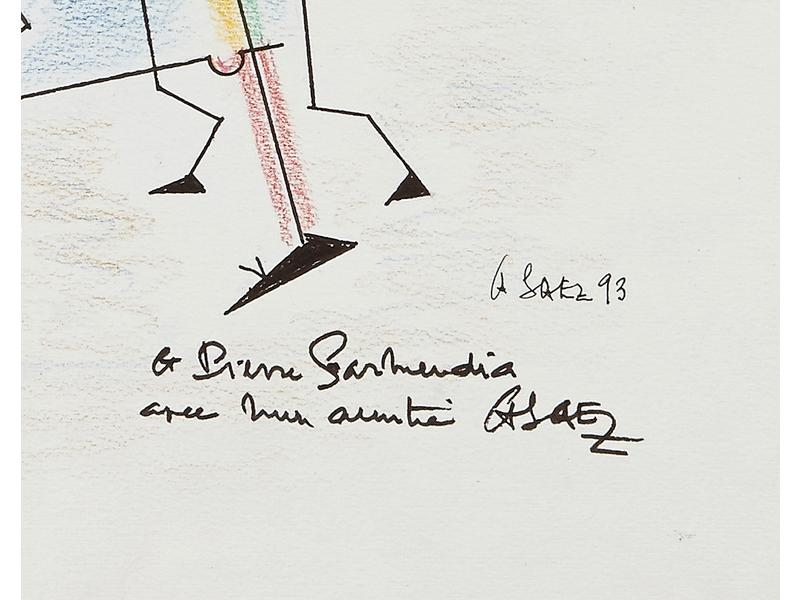 A SAEZ 93
à Pierre Garmendia
avec mon amitié ASAEZ